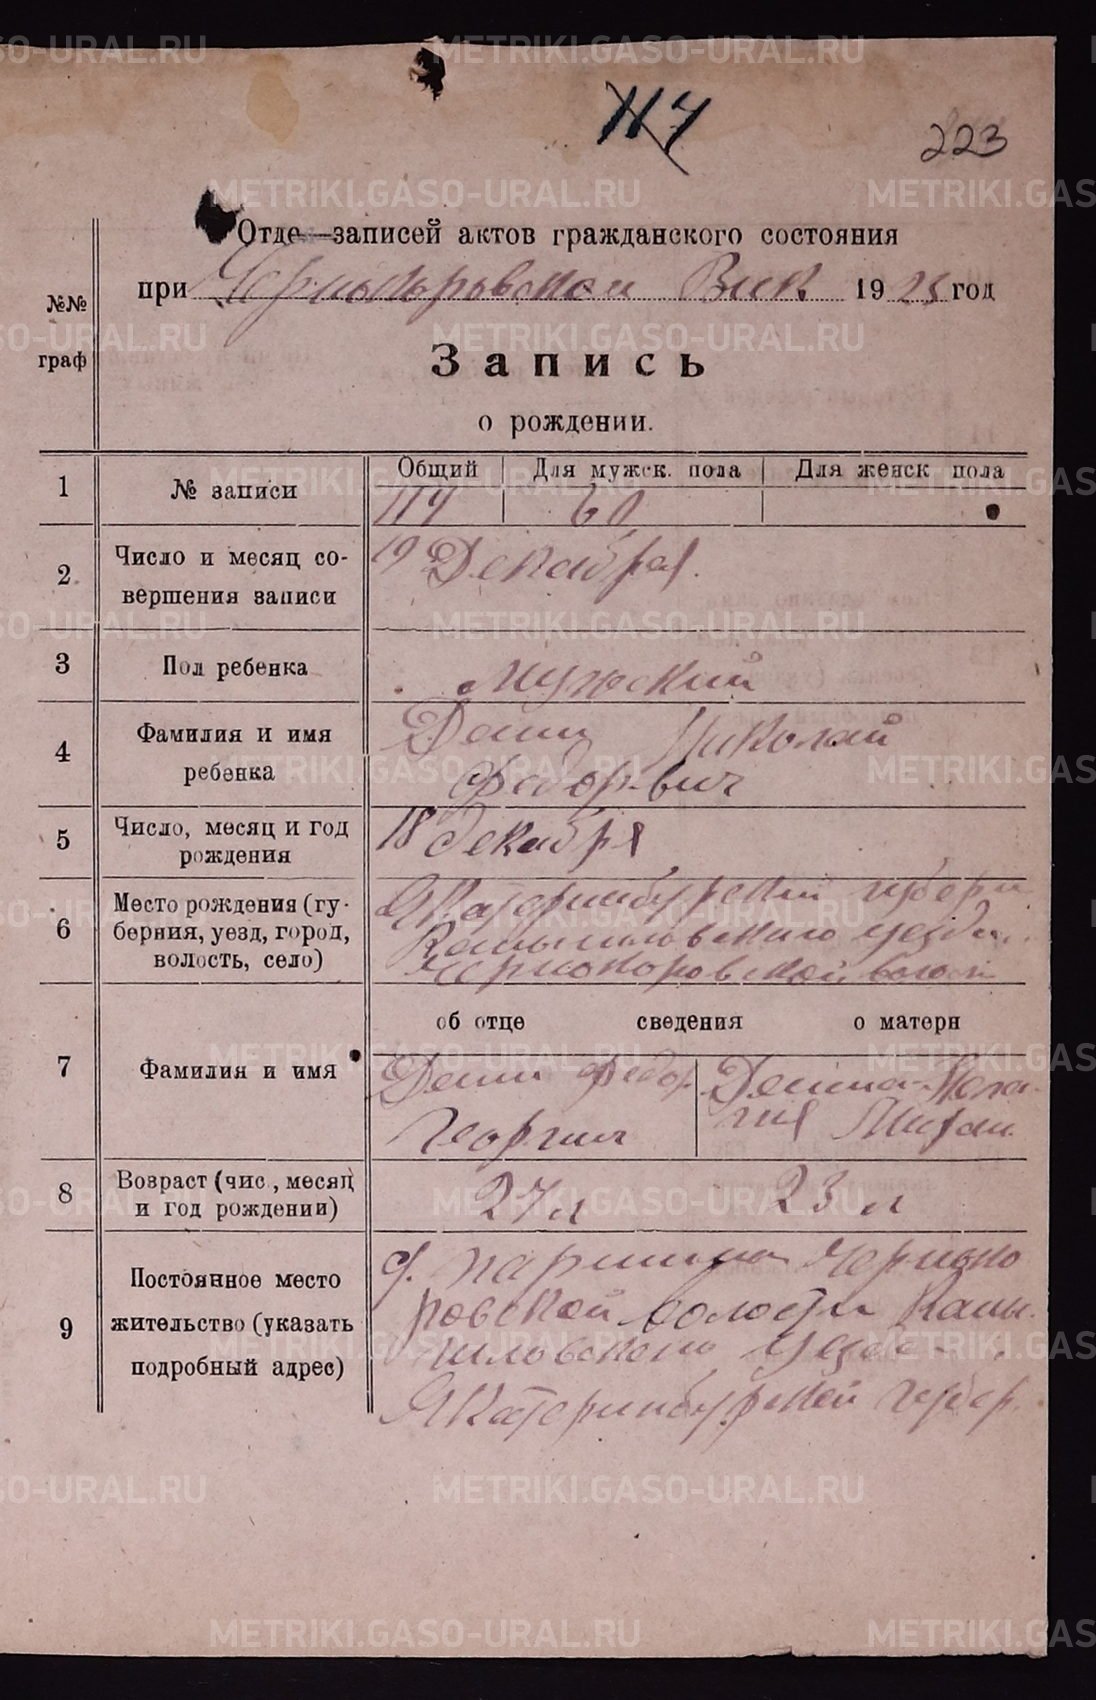 METRIKI.GASO-URAL.RU
117
223
Отде записей актов гражданского состояния
при Чернокоровском Вик 1923 год
№№ граф
Запись
о рождении.
1 № записи
Общий Для мужск. пола Для женск пола
117 60
2 Число и месяц со-
вершения записи
19 Декабря.
3 Пол ребенка
мужский
4 Фамилия и имя
ребенка
Николай
Федорович
5 Число, месяц и год
рождения
18 декабря
6 Место рождения (гу-
берния, уезд, город,
волость, село)
Екатеринбургский губерн
Камышловского уезда
Чернокоровской волост
об отце сведения о матери
7 Фамилия и имя
Федор
Георгий
Пела-
гия
8 Возраст (чис., месяц
и год рождении)
27 л 23 л
9 Постоянное место
жительство (указать
подробный адрес)
д. Паршина Черноко
ровской волости Камы
шловского уезда
Якатеринбургской губер.